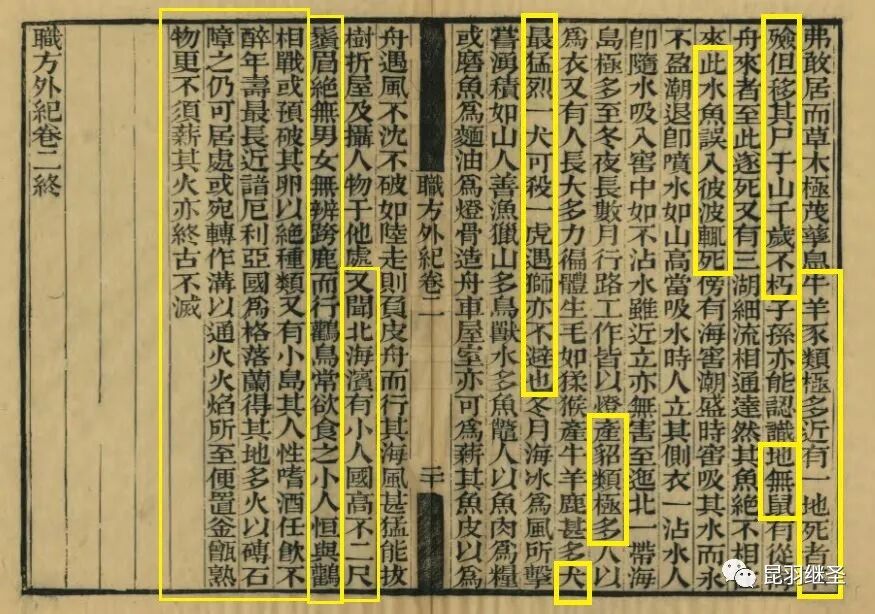 弗敢居而草木極茂華鳥牛羊豕類極多近有一地死者
殮但移其尸于山千歲不朽子孫亦能認識地無鼠有從
舟來者至此遂死又有三湖細流相通達然其魚絕不相
來此水魚誤入彼波輒死傍有海窖潮盛時窖吸其水而永
不盈潮退卽噴水如山高當吸水時人立其側衣一沾水人
卽隨水吸入窖中如不沾水雖近立亦無害至迤北一帶海
島極多至冬夜長數月行路工作皆以燈產貂類極多人以
為衣又有人長大多力徧體生毛如猱猴產牛羊鹿甚多犬
最猛烈一犬可殺一虎遇獅亦不避也冬月海冰為風所擊
嘗湧積如山人善漁獵山多鳥獸水多魚鼈人以魚肉為糧
或磨魚為麵油為燈骨造舟車屋室亦可為薪其魚皮以為
職方外紀卷二
二十
舟遇風不沈不破如陸走則負皮舟而行其海風甚猛能拔
樹折屋及攝人物于他處又聞北海濱有小人國高不二尺
鬚眉絕無男女無辨跨鹿而行鸛鳥常欲食之小人恒與鸛
相戰或預破其卵以絕種類又有小島其人性嗜酒任飲不
醉年壽最長近諳厄利亞國為格落蘭得其地多火以磚石
障之仍可居處或宛轉作溝以通火火焰所至便置釜甑熟
物更不須薪其火亦終古不滅
職方外紀卷二終
昆羽继圣